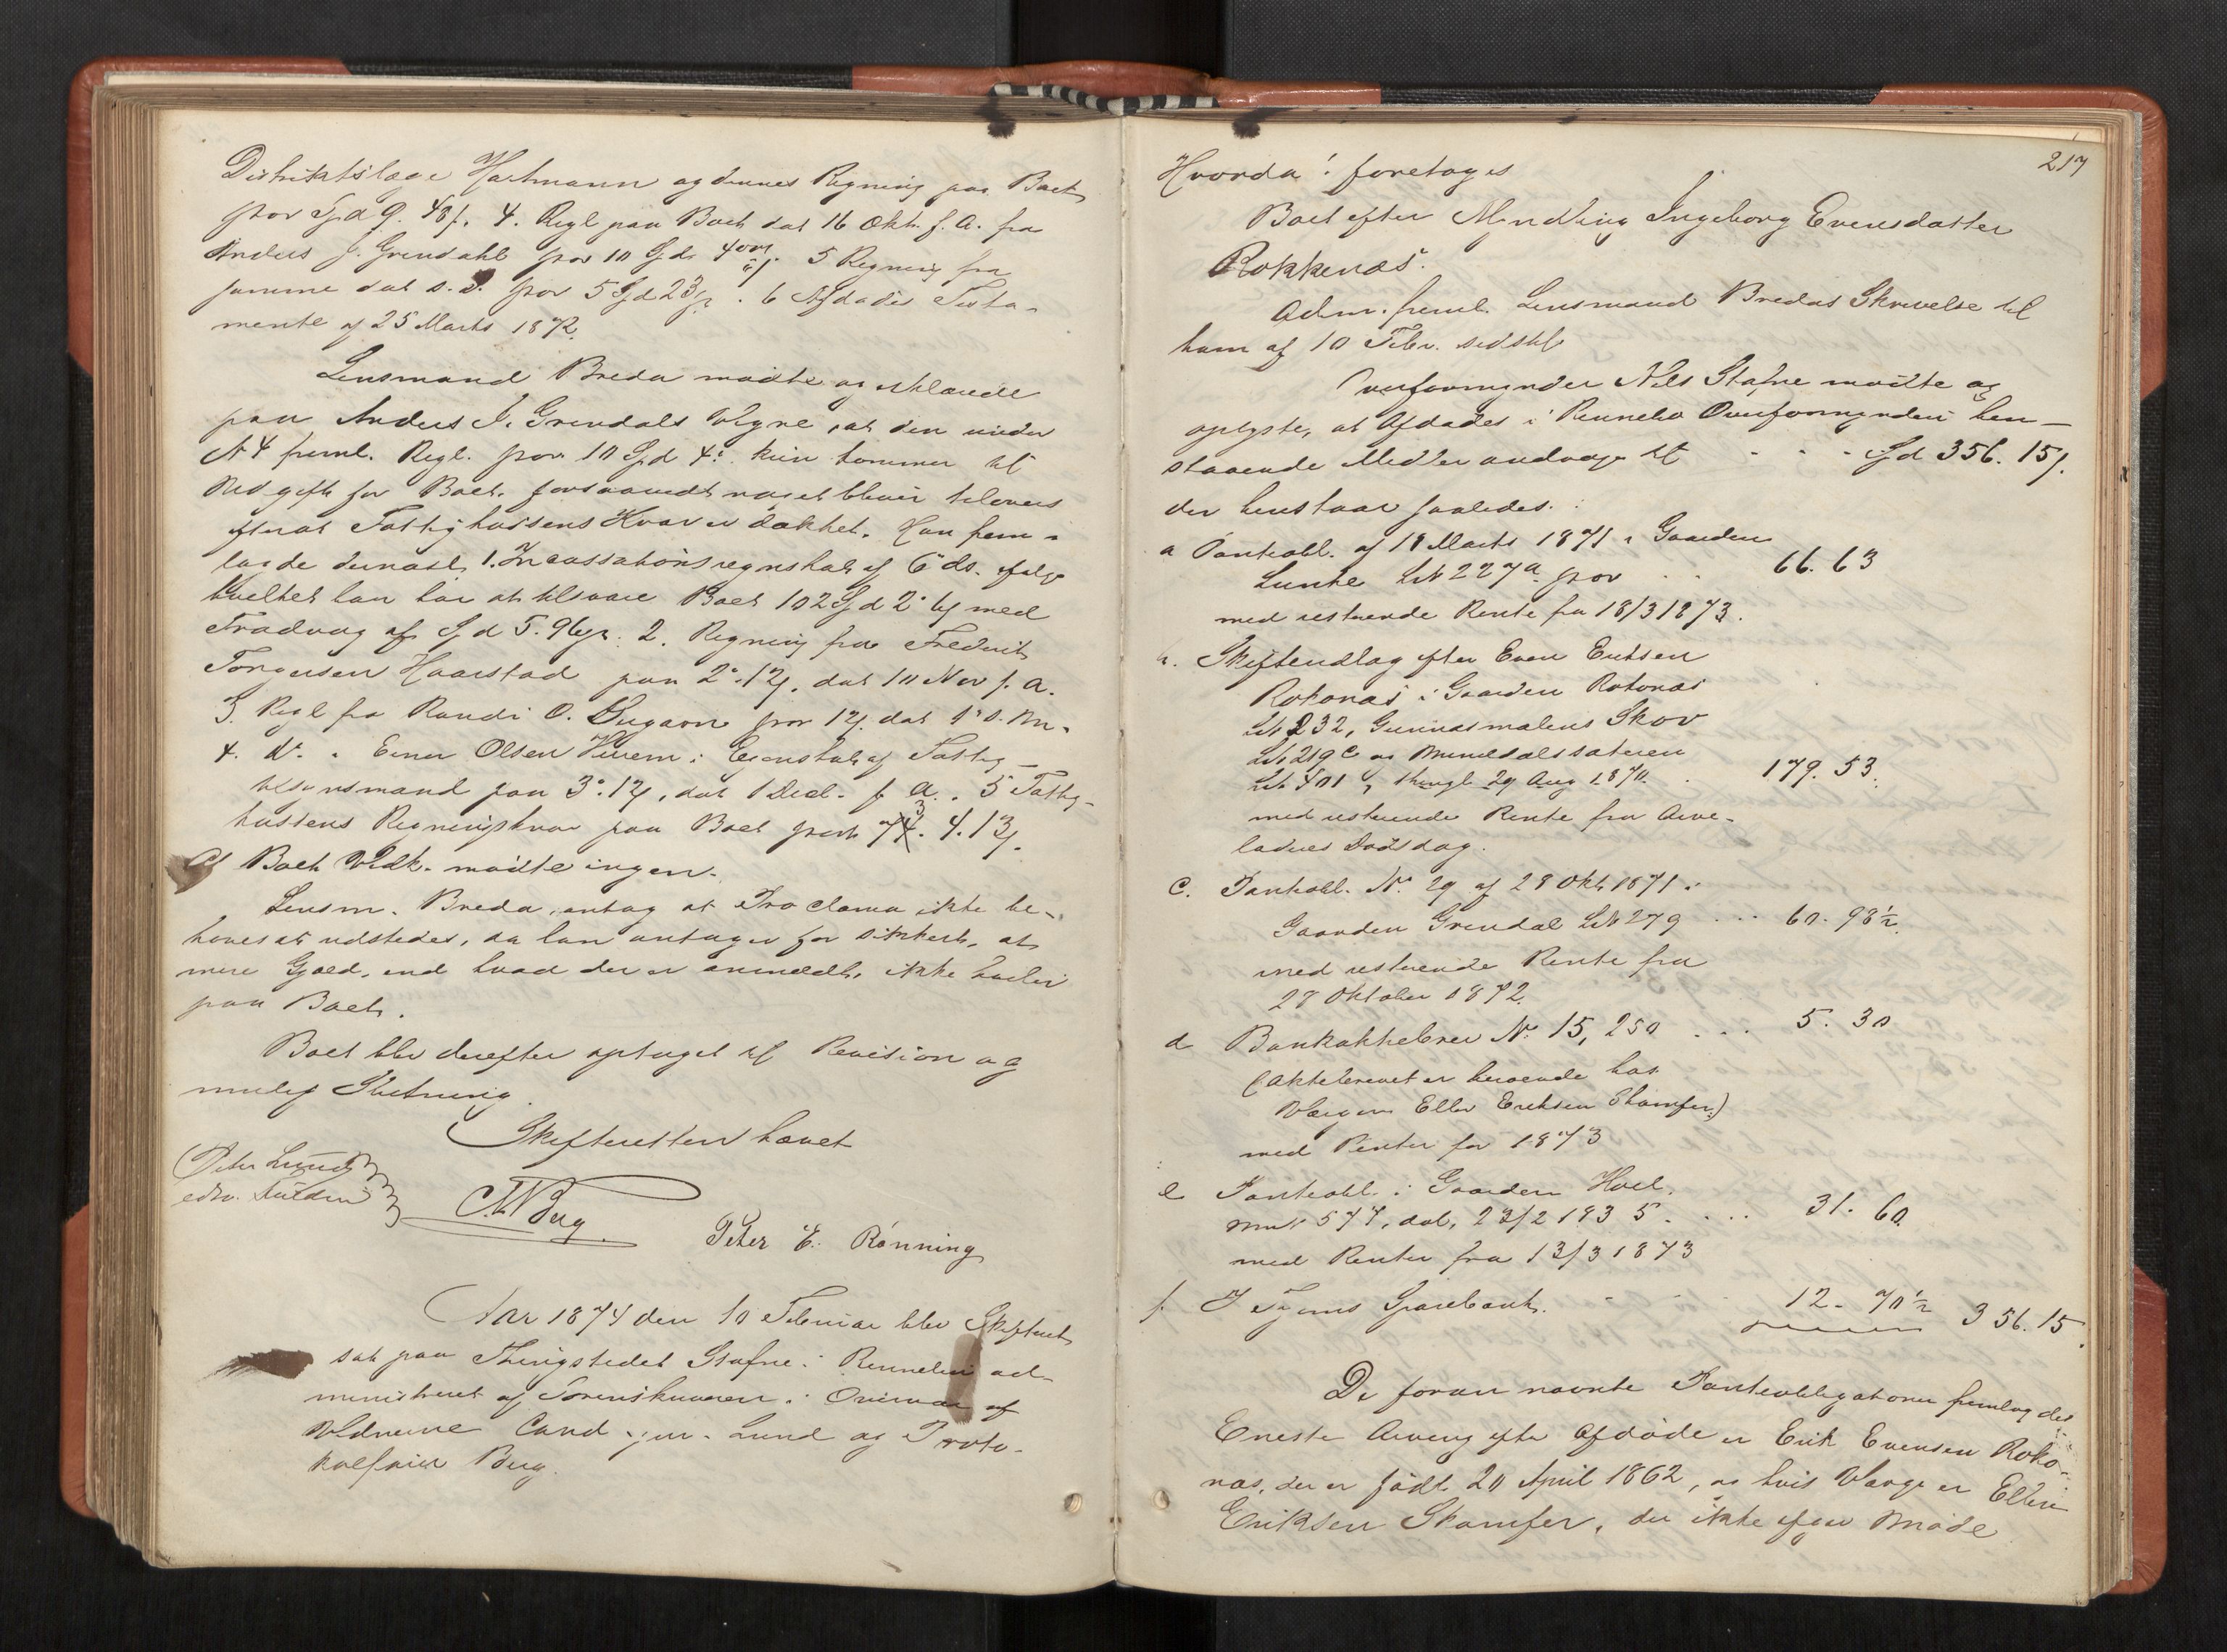 Distriktslæge Hartmann og dennes Regning paa Boet
stor Spd 9. 48 s. 4. Regl paa Boet dat 16 Okt. f. A. fra
Anders J. Grendahl stor 10 Spd. 4 ort s. 5 Regning fra
samme dat s. D. stor 5 Spd 23 s. 6 Afdødes Testa-
mente af 25 Marts 1872.
Lensmand Breda mødte og erklærede
paa Anders J. Grendals Vegne, at den under
N 4 freml. Regl. stor 10 Spd 4: kun kommer til
Udgift for Boet, forsaavidt noget bliver tilovers
efterat Fattigkassens Krav er dækket. Han frem-
lagde dernæst, 1. Incassationsregnskab af 6 ds. ifølge
hvilket han har at tilsvare Boet 102 Spd 2: 4 s med
Fradrag af Spd 5. 96 s. 2. Regning fra Frederik
Torgersen Haarstad paa 2: 12 s. dat 10 Nov f. A.
3. Regl fra Randi O. stor 12 s. dat 1 s. M.
4. Dt. " Einer Olsen Viirem i Egenskab af Fattig-
tilsynsmand paa 3: 12 s, dat 1 Decb. f. A. 5 Fattig-
kassens Regningskrav paa Boet stort 73. 4. 13 s.
Af Boets Vedk. mødte ingen.
Lensm. Breda, antog at Proclama ikke be-
høves at udstedes, da han antager for sikkert, at
mere Gjæld, end hvad der er anmeldt, ikke hviler
paa Boet.
Boet blev derefter optaget til Revision og
mulig Slutning.
Skifteretten hævet
Peter Lund
edsv. Fuldm
C. W. Berg.
Peter E. Rønning
Aar 1874 den 10 Februar blev Skifteret
sat paa Thingstedet Stafne i Rennebu ad-
ministreret af Sorenskriveren i Overvær af
Vidnerne Cand. jur. Lund og Proto-
kolfører Berg.
217
Hvorda! foretages
Boet efter Myndling Ingeborg Evensdatter
Rokkenæs.
Adm. freml. Lensmand Bredas Skrivelse til
ham af 10 Febr. sidstl.
Overformynder Nils Stafne mødte og
oplyste, at Afdødes i Rennebu Overformynderi hen-
staaende Midler androge til - - - Spd 356. 15 s.
der henstaar saaledes:
a Panteobl. af 18 Marts 1871 i Gaarden
Lunke LN 227a stor . . 66. 63
med resterende Rente fra 18/3 1873.
b. Skifteudlæg efter Even Eriksen
Rokonæs i Gaarden Rokonæs
LN 232, Gunnesmalens Skov
LN 219c og Mineldalssæteren
LN 401, thingl. 29 Aug 1870. . 179. 53.
med resterende Rente fra Arve-
laders Dødsdag.
c. Panteobl. N. 29 af 28 Okt. 1871 i
Gaarden Grendal LN 279 ... 60. 98½.
med resterende Rente fra
28 Oktober 1872.
d Bankaktiebrev N. 15,250 ... 5. 30
(Aktiebrevet er beroende hos
Værgen Ellev Eriksen Skamfer.)
med Renter for 1873
e Panteobl. i Gaarden Hoel.
MN 577, dat. 23/2 1835. ... 31. 60.
med Renter fra 13/3 1873
f. I Egnens Sparebank. - - - 12. 70½ 356. 15.
De foran nævnte Panteobligationer fremlagdes
Eneste Arving efter Afdøde er Erik Evensen Roko-
næs, der er født 20 April 1862, og hvis Værge er Ellev
Eriksen Skamfer, der ikke efter Møde